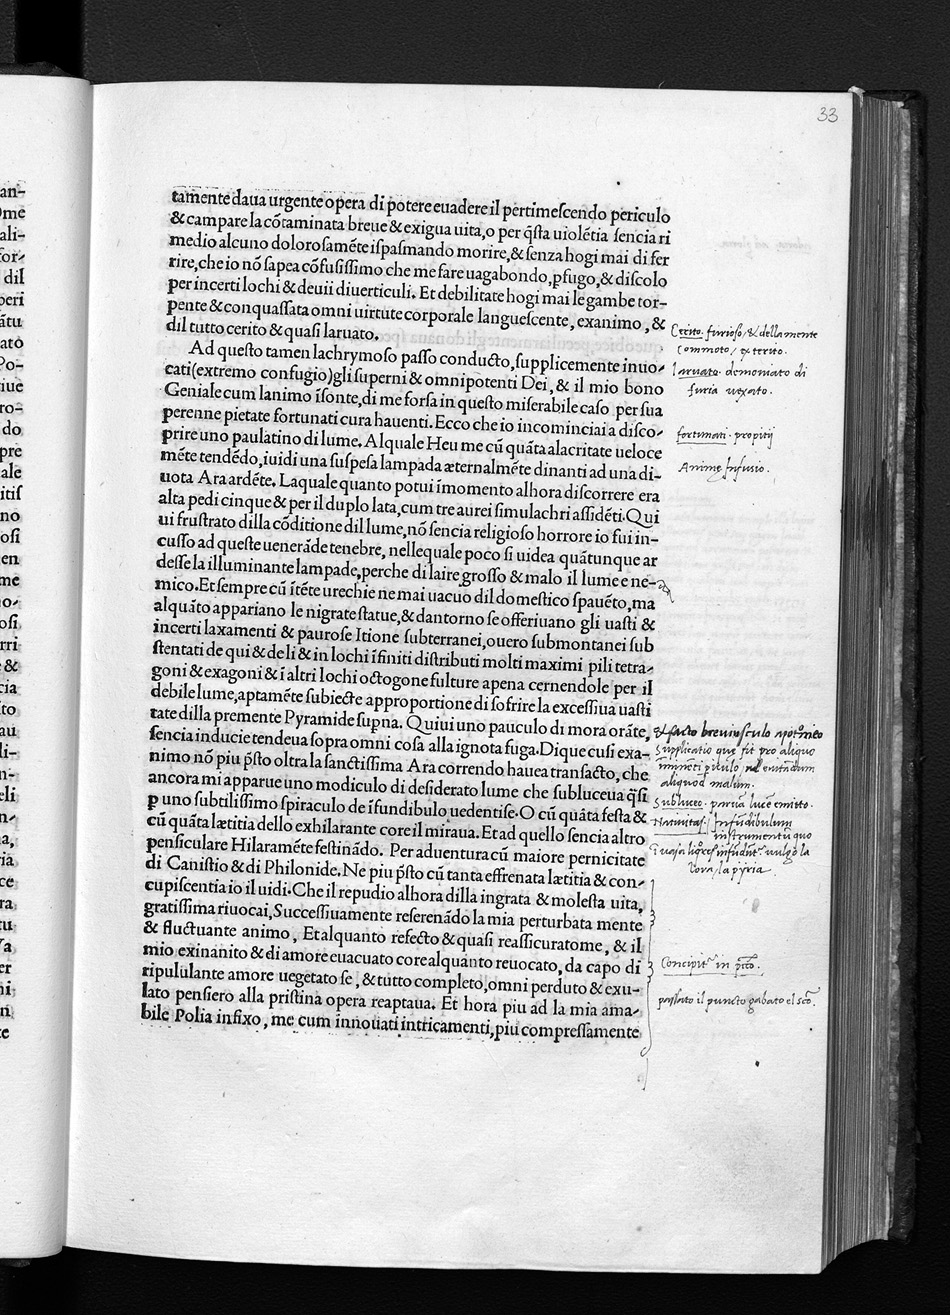 33
tamente daua urgente opera di potere euadere il pertimescendo periculo
& campare la cõtaminata breue & exigua uita, o per q̃sta uiolẽtia sencia ri
medio alcuno dolorosamẽte ispasmando morire, & senza hogi mai di fer
rire, che io nõ sapea cõfusissimo che me fare uagabondo, ꝓfugo, & discolo
per incerti lochi & deuii diuerticuli. Et debilitate hogi mai le gambe tor-
pente & conquassata omni uirtute corporale languescente, exanimo, &
dil tutto cerito & quasi laruato.
Ad questo tamen lachrymoso passo conducto, supplicemente inuo-
cati (extremo confugio) gli superni & omnipotenti Dei, & il mio bono
Geniale cum lanimo ĩsonte, di me forsa in questo miserabile caso per sua
perenne pietate fortunati cura hauenti. Ecco che io incominciai a disco-
prire uno paulatino di lume. Al quale Heu me cũ quãta alacritate ueloce
mẽte tendẽdo, iuidi una suspesa lampada æternalmẽte dinanti ad una di-
uota Ara ardẽte. Laquale quanto potui ĩmomento alhora discorrere era
alta pedi cinque & per il duplo lata, cum tre aurei simulachri assidẽti. Qui
ui frustrato dilla cõditione dil lume, nõ sencia religioso horrore io fui in-
cusso ad queste uenerãde tenebre, nellequale poco si uidea quãtunque ar
desse la illuminante lampade, perche di laire grosso & malo il lume e ne-
mico. Et sempre cũ itẽte urechie ne mai uacuo dil domestico spauẽto, ma
alquãto appariano le nigrate statue, & dantorno se offeriuano gli uasti &
incerti laxamenti & paurose Itione subterranei, ouero submontanei sub
stentati de qui & de li & in lochi ĩfiniti distributi molti maximi pili tetra-
goni & exagoni & ĩ altri lochi octogone fulture apena cernendole per il
debile lume, aptamẽte subiecte approportione di sofrire la excessiua uasti
tate dilla premente Pyramide supna. Quiui uno pauculo di mora orãte,
sencia inducie tendeua sopra omni cosa alla ignota fuga. Dique cusi exa-
nimo nõ piu p̃sto oltra la sanctissima Ara correndo hauea transacto, che
ancora mi apparue uno modiculo di desiderato lume che subluceua q̃si
ꝑ uno subtilissimo spiraculo de ĩfundibulo uedentise. O cũ quãta festa &
cũ quãta lætitia dello exhilarante core il miraua. Et ad quello sencia altro
pensiculare Hilaramẽte festinãdo. Per aduentura cũ maiore pernicitate
di Canistio & di Philonide. Ne piu p̃sto cũ tanta effrenata lætitia & con-
cupiscentia io il uidi. Che il repudio alhora dilla ingrata & molesta uita,
gratissima riuocai, Successiuamente referenãdo la mia perturbata mente
& fluctuante animo, Et alquanto refecto & quasi reassicuratome, & il
mio exinanito & di amore euacuato core alquanto reuocato, da capo di
ripululante amore uegetato se, & tutto completo, omni perduto & exu-
lato pensiero alla pristina opera reaptaua. Et hora piu ad la mia ama-
bile Polia infixo, me cum innouati intricamenti, piu compressamente
Cerito. furioso, & della mente
Commoto, exterito.
laruato. demoniato di
furia vexato.
fortunati. propitij
Animę Infusio.
& facto breuiusculo
Supplicatio quę fit pro aliquo
ĩminẽti piculo euitandum
aliquod malum.
Subluceo. parũ lucẽ emitto.
Infũdibulum
instrumentũ quo
uulgo la
la pyria
Concipit in
passato il puncto gabato el